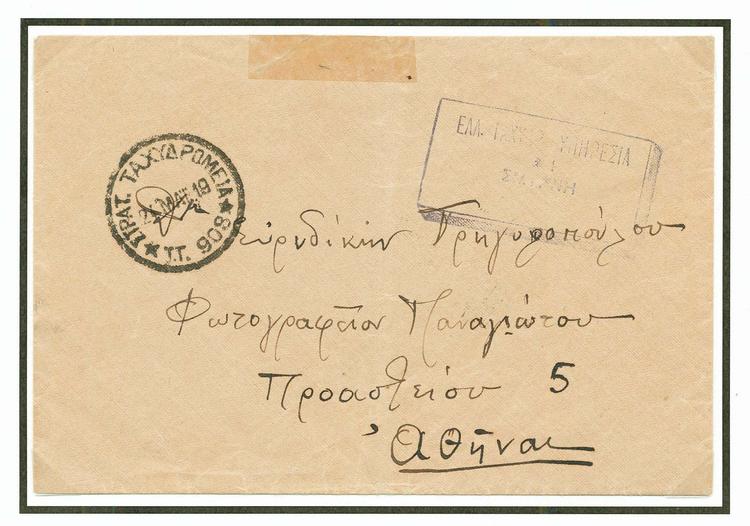 ΣΤΡΑΤ. ΤΑΧΥΔΡΟΜΕΙΑ
ΜΑΪ. 19
Τ.Τ. 908
ΕΛΛ. ΤΑΧΥΔ. ΥΠΗΡΕΣΙΑ
ΣΜΥΡΝΗ
Εὐρυδίκην Γρηγοροπούλου
Φωτογραφεῖον Παναγιώτου
Προαστείου 5
Ἀθήνας